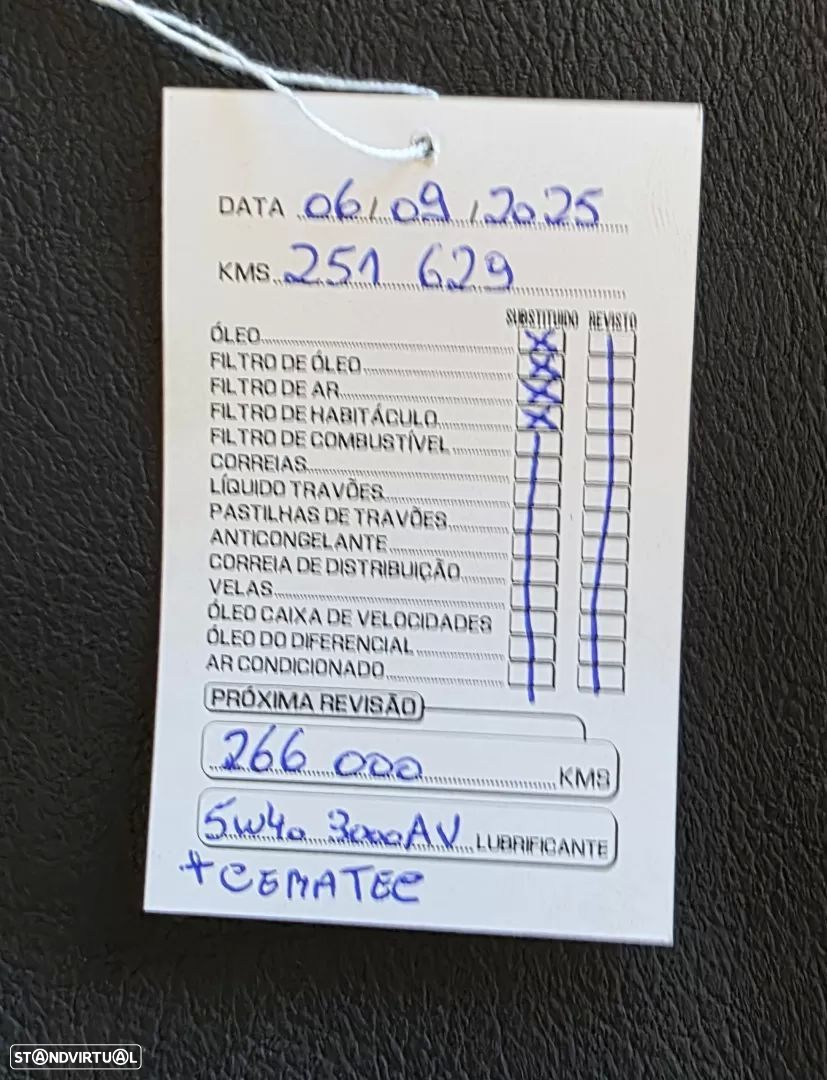 DATA 06/09/2025
KMS 251 629
SUBSTITUIDO REVISTO
ÓLEO
FILTRO DE ÓLEO
FILTRO DE AR
FILTRO DE HABITÁCULO
FILTRO DE COMBUSTÍVEL
CORREIAS
LÍQUIDO TRAVÕES
PASTILHAS DE TRAVÕES
ANTICONGELANTE
CORREIA DE DISTRIBUIÇÃO
VELAS
ÓLEO CAIXA DE VELOCIDADES
ÓLEO DO DIFERENCIAL
AR CONDICIONADO
PRÓXIMA REVISÃO
266 000 KMS
5W40 3000AV LUBRIFICANTE
+CEMATEC
STANDVIRTUAL